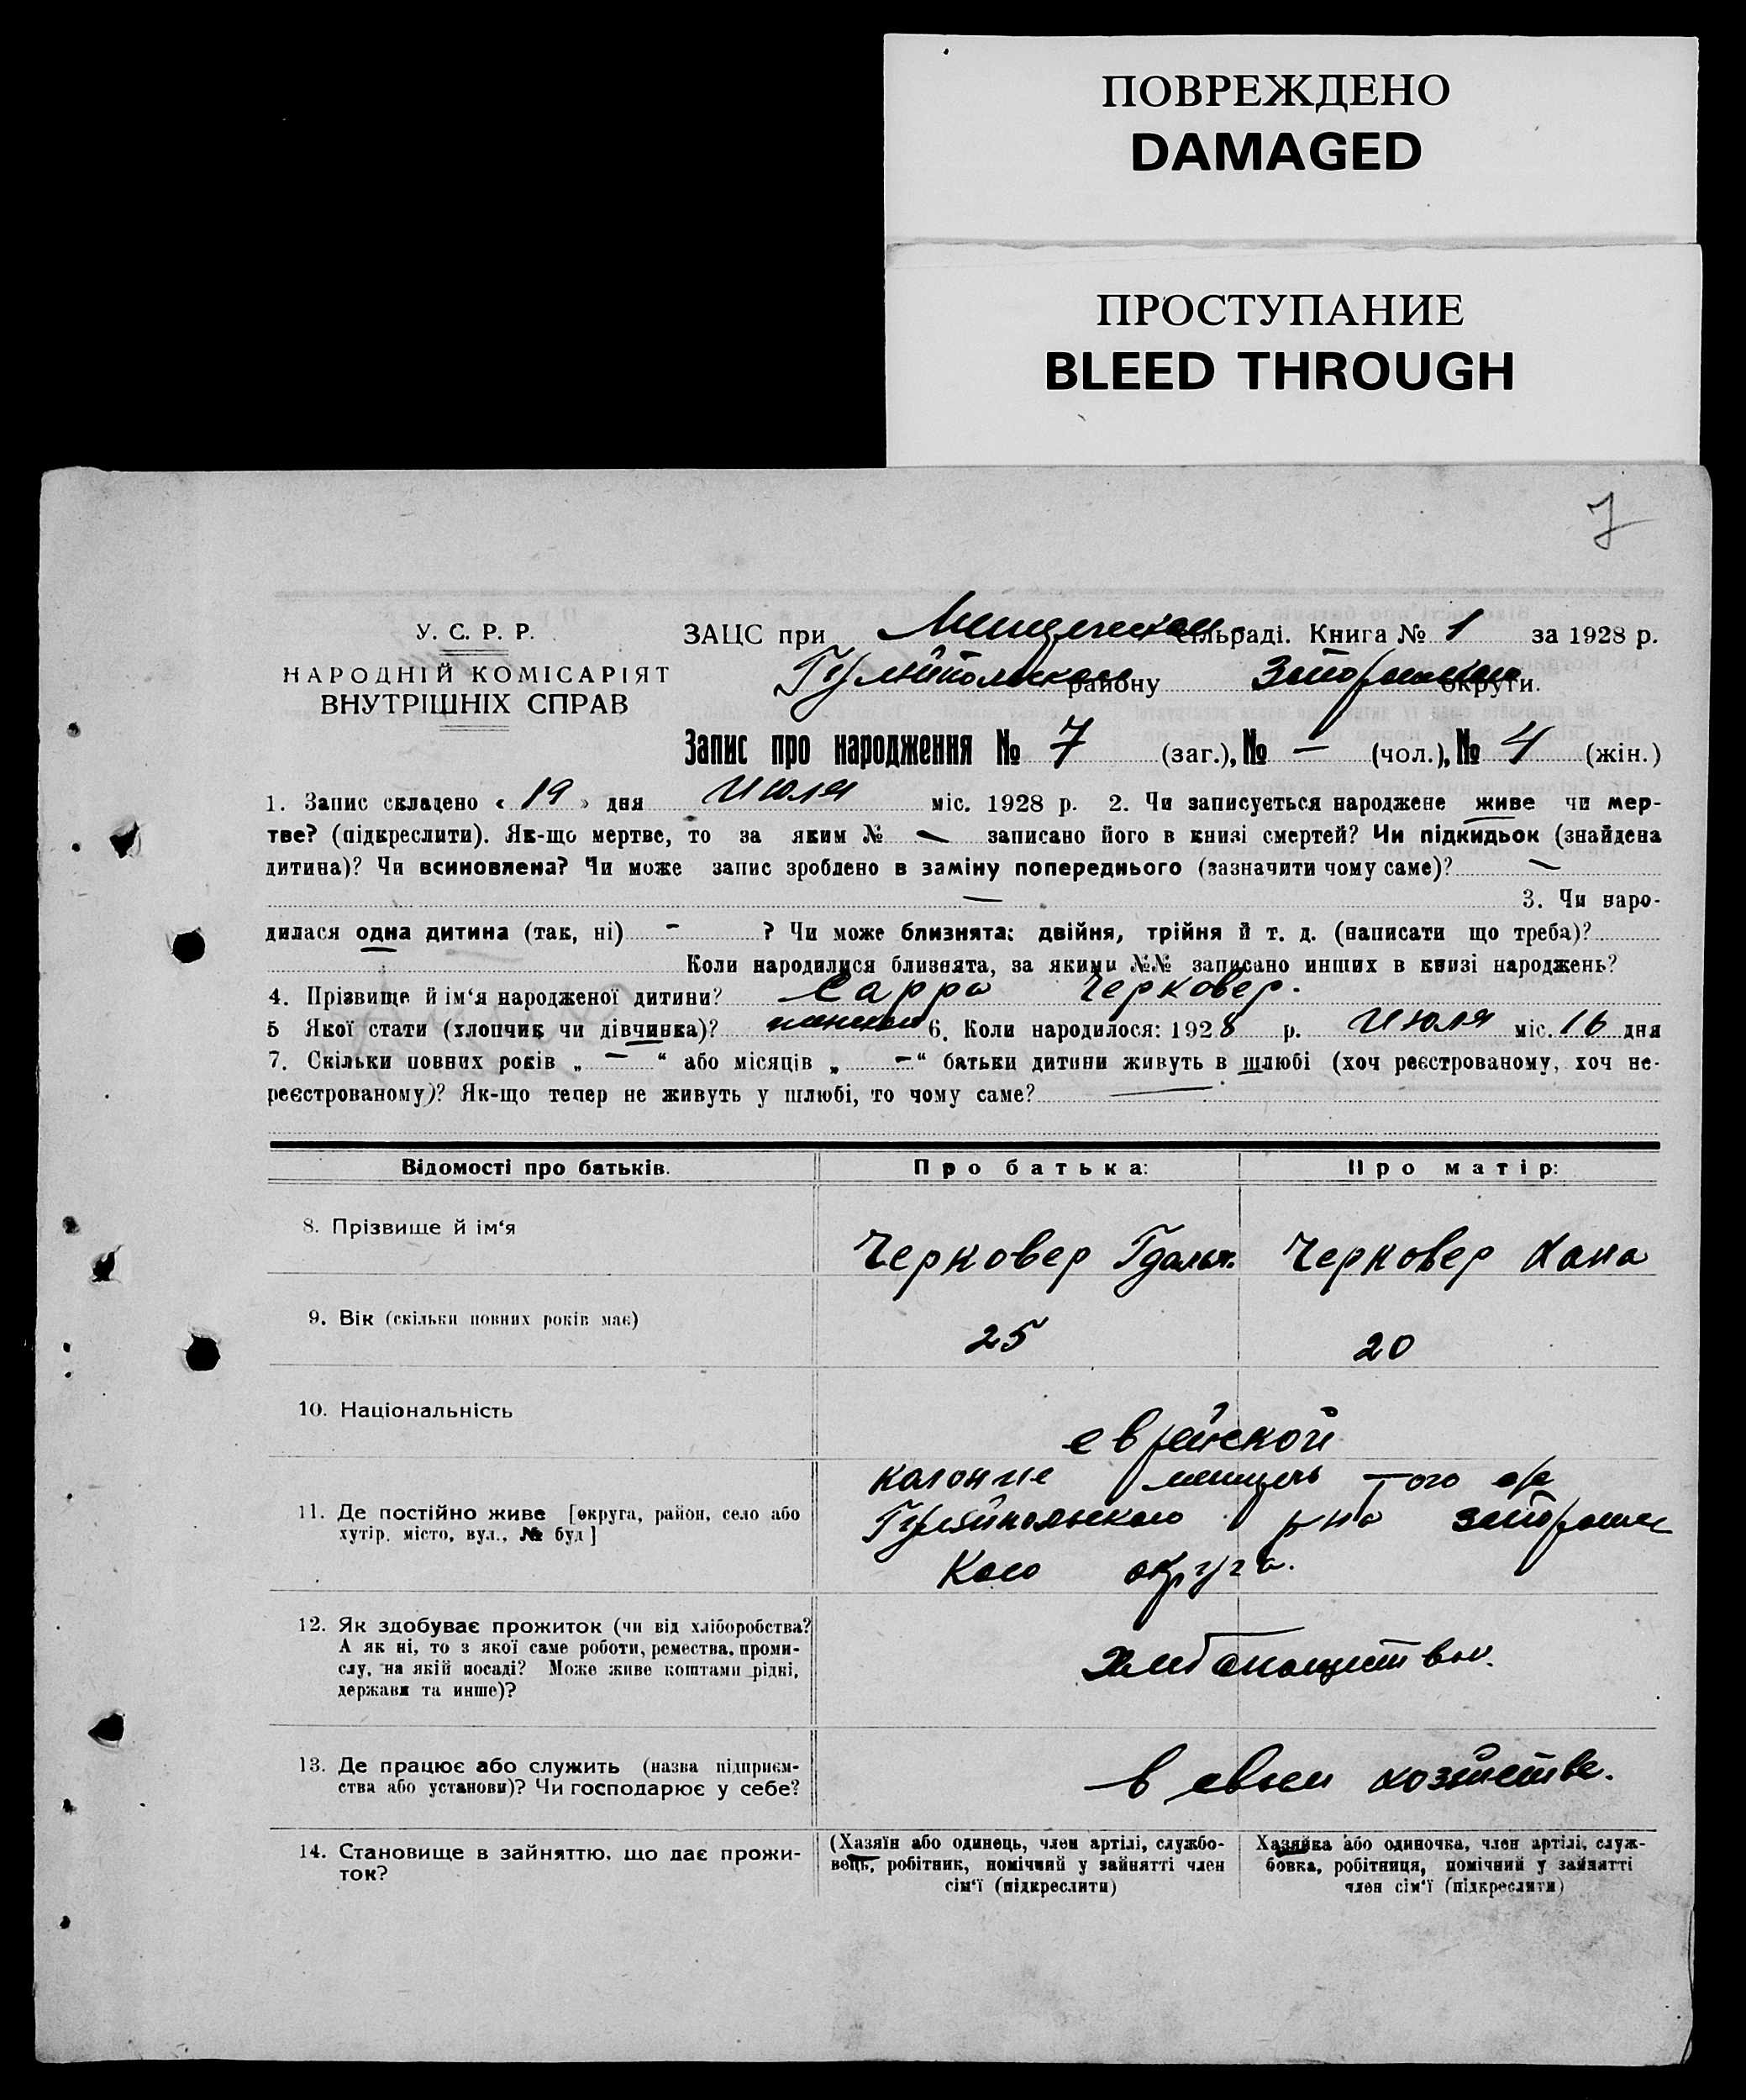 ПОВРЕЖДЕНО
DAMAGED
ПРОСТУПАНИЕ
BLEED THROUGH
7
У. С. Р. Р.
НАРОДНІЙ КОМІСАРІЯТ
ВНУТРІШНІХ СПРАВ
ЗАЦС при сільраді. Книга № 1 за 1928 р.
району округи.
Запис про народження № 7 (заг.), № — (чол.), № 4 (жін.)
1. Запис складено « 19 » дня Июля міс. 1928 р. 2. Чи записується народжене живе чи мер-
тве? (підкреслити). Як-що мертве, то за яким № — записано його в книзі смертей? Чи підкидьок (знайдена
дитина)? Чи всиновлена? Чи може запис зроблено в заміну попереднього (зазначити чому саме)? —
— 3. Чи наро-
дилася одна дитина (так, ні) - ? Чи може близнята: двійня, трійня й т. д. (написати що треба)?
Коли народилися близнята, за якими №№ записано инших в книзі народжень?
4. Прізвище й ім‘я народженої дитини? Сарра Черковер.
5 Якої стати (хлопчик чи дівчинка)? женской 6. Коли народилося: 1928 р. Июля міс. 16 дня
7. Скільки повних років „ — “ або місяців „ — “ батьки дитини живуть в шлюбі (хоч реєстрованому, хоч не-
реєстрованому)? Як-що тепер не живуть у шлюбі, то чому саме? —
Відомості про батьків. Про батька: Про матір:
8. Прізвище й ім‘я Черковер Гдаль. Черковер Хана
9. Вік (скільки повних років має) 25 20
10. Національність еврейской
колоние того же
11. Де постійно живе [округа, район, село або р-на Запорожс
хутір, місто, вул., № буд]
кого округа.
12. Як здобуває прожиток (чи від хліборобства?
А як ні, то з якої саме роботи, ремества, проми-
слу, на якій посаді? Може живе коштами рідні,
держави та инше)?
13. Де працює або служить (назва підприєм- в своем хозяйстве.
ства або установи)? Чи господарює у себе?
14. Становище в зайняттю, що дає прожи-
ток?
(Хазяїн або одинець, член артілі, службо-
вець, робітник, помічний у зайнятті член
сім‘ї (підкреслити)
Хазяйка або одиночка, член артілі, служ-
бовка, робітниця, помічний у зайнятті
член сім‘ї (підкреслити)